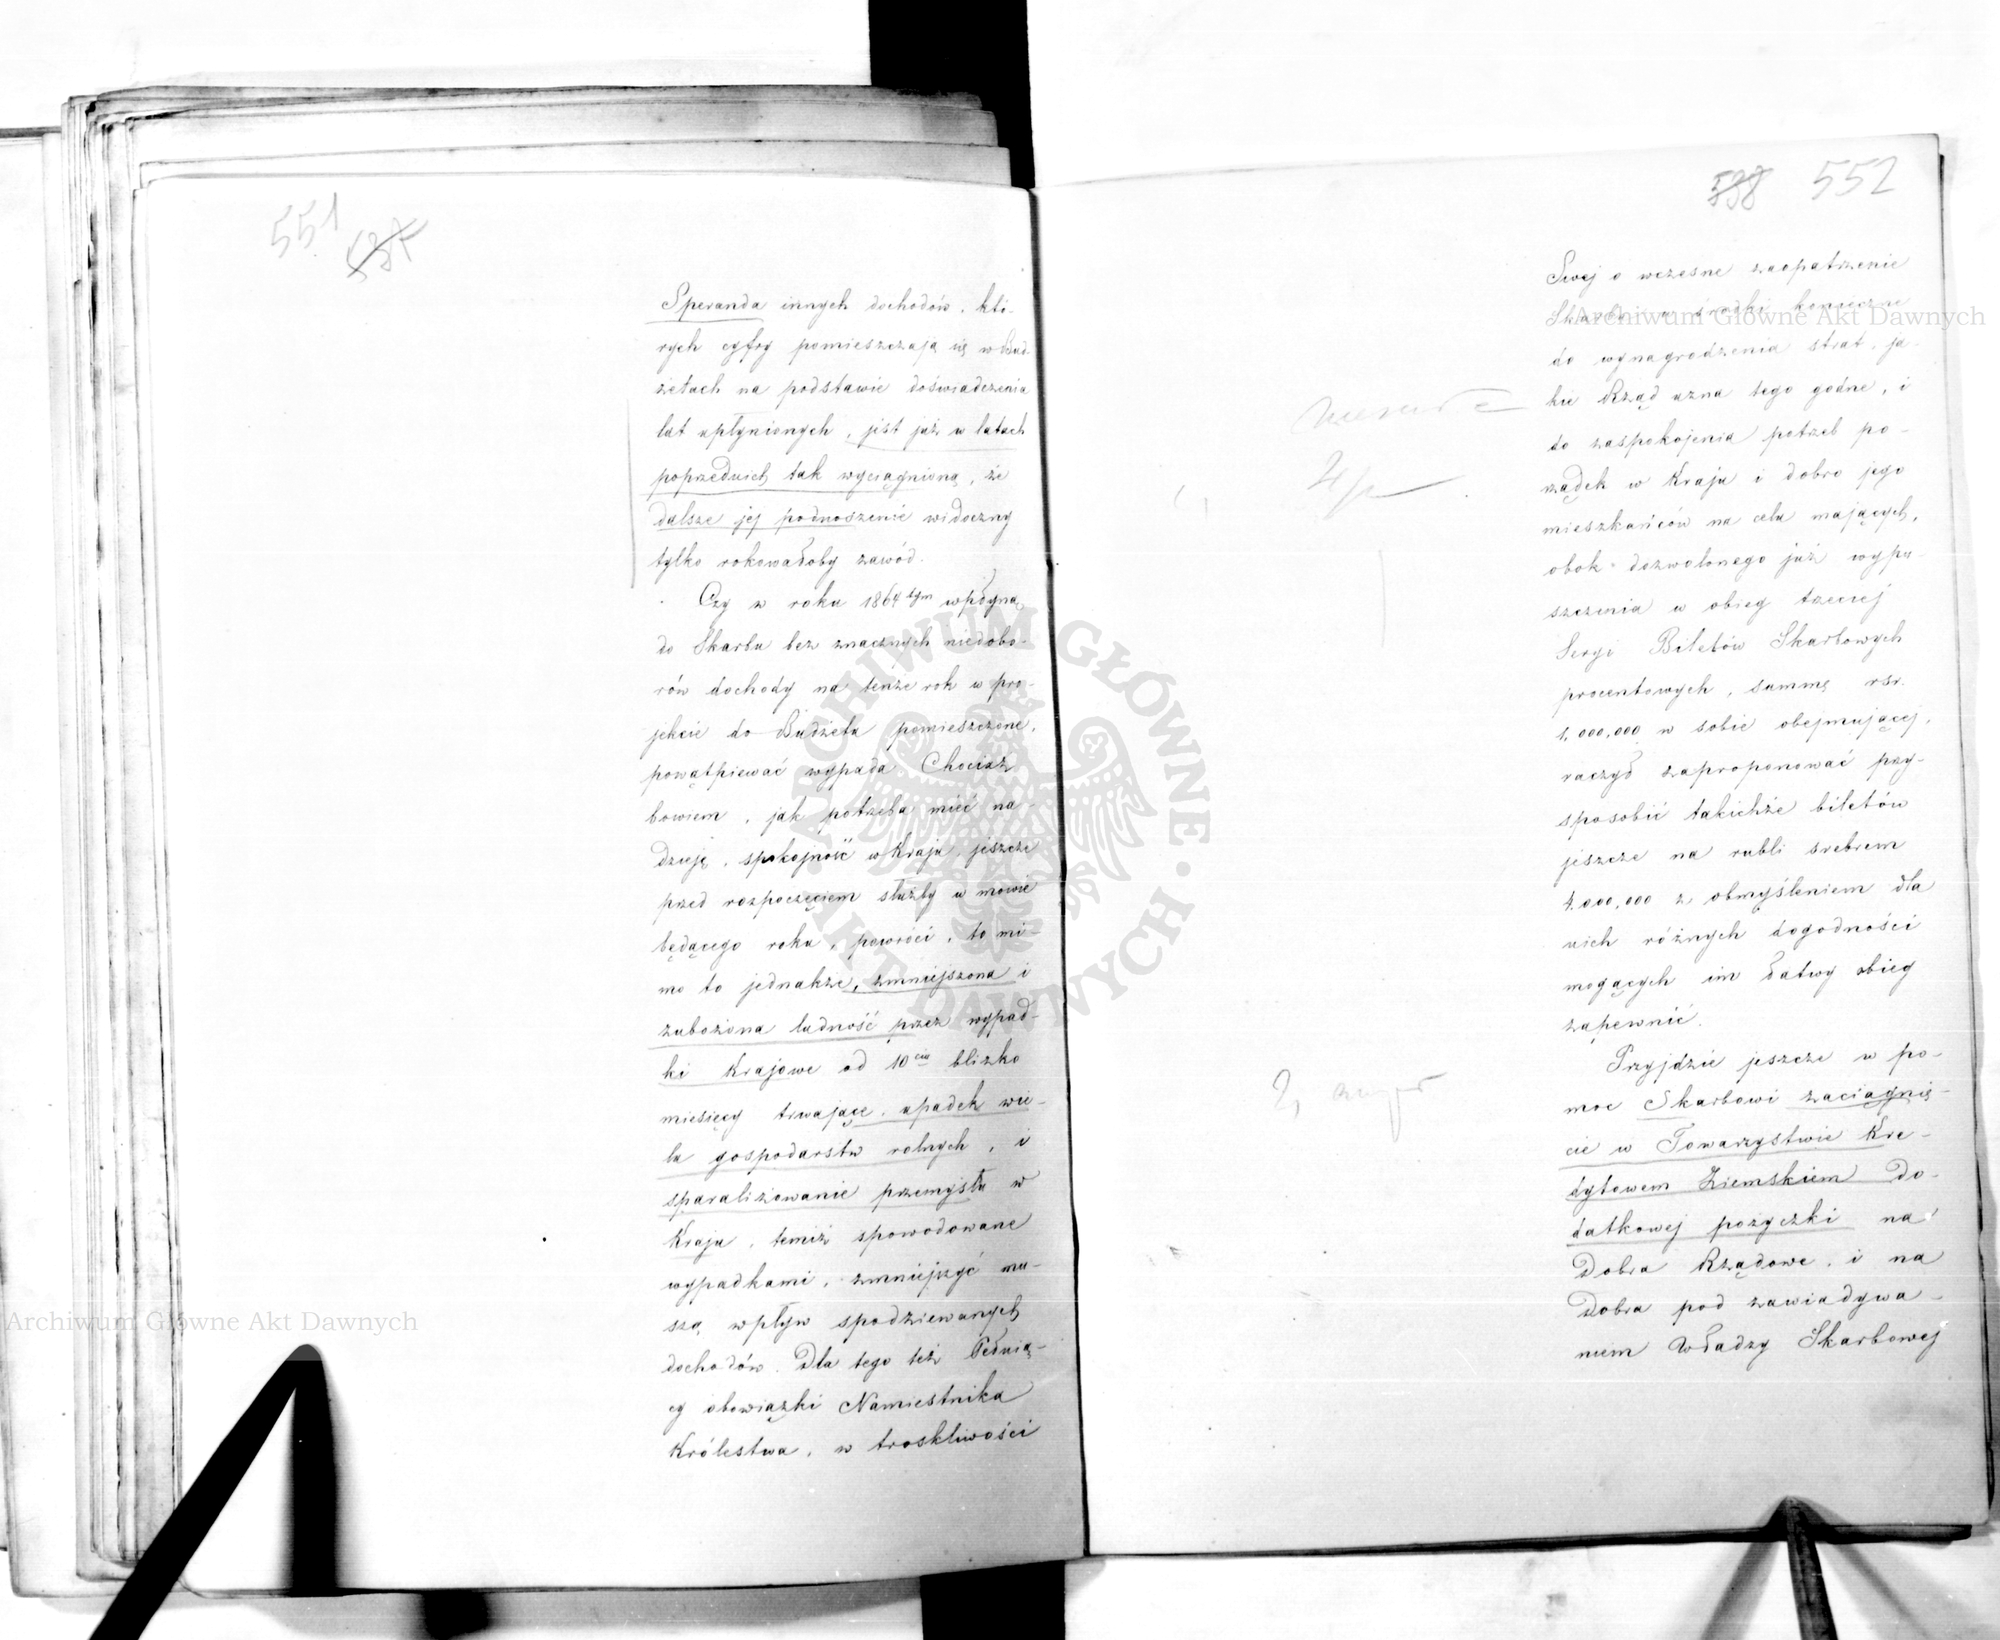 551
537
Speranda innych dochodów, któ-
rych cyfry pomieszczają się w Bud-
żetach na podstawie doświadczenia
lat upłynionych, jest już w latach
poprzednich tak wyciągnioną, że
dalsze jej podnoszenie widoczny
tylko rokowałoby zawód.
Czy w roku 1864tym wpłyną
do Skarbu bez znacznych niedobo-
rów dochody na tenże rok w pro-
jekcie do Budżetu pomieszczone,
powątpiewać wypada Chociaż
bowiem, jak potrzeba mieć na-
dzieję, spokojność w Kraju, jeszcze
przed rozpoczęciem służby w mowie
będącego roku, powróci, to mi-
mo to jednakże, zmniejszona i
zubożona ludność przez wypad-
ki Krajowe od 10ciu blizko
miesięcy trwające, upadek wie-
lu gospodarstw rolnych, i
sparaliżowanie przemysłu w
Kraju, temiż spowodowane
wypadkami, zmniejszyć mu-
szą wpływ spodziewanych
dochodów. Dla tego też Pełnią-
cy obowiązki Namiestnika
Królestwa, w troskliwości
538 552
Swej o wczesne zaopatrzenie
Skarbu w środki konieczne
do wynagrodzenia strat, ja-
kie Rząd uzna tego godne, i
do zaspokojenia potrzeb po-
rządek w Kraju i dobro jego
mieszkańców na celu mających,
obok dozwolonego już wypu-
szczenia w obieg trzeciej
Seryi Biletów Skarbowych
procentowych, summę rsr.
1,000,000 w sobie obejmującej,
raczył zaproponować przy-
sposobić takichże biletów
jeszcze na rubli srebrem
000,000 z obmyśleniem dla
nich różnych dogodności
mogących im łatwy obieg
zapewnić.
Przyjdzie jeszcze w po-
moc Skarbowi zaciągnię-
cie w Towarzystwie Kre-
dytowem Ziemskiem Do-
datkowej pożyczki na
Dobra Rządowe, i na
Dobra pod zawiadywa-
niem Władzy Skarbowej
Archiwum Główne Akt Dawnych
Archiwum Główne Akt Dawnych
ARCHIWUM GŁÓWNE AKT DAWNYCH